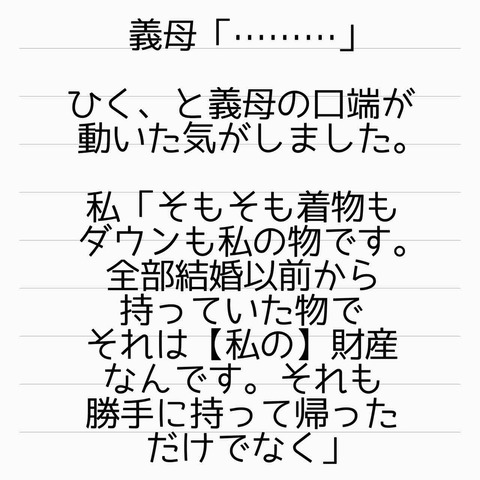 義母「………」
ひく、と義母の口端が
動いた気がしました。
私「そもそも着物も
ダウンも私の物です。
全部結婚以前から
持っていた物で
それは【私の】財産
なんです。それも
勝手に持って帰った
だけでなく」